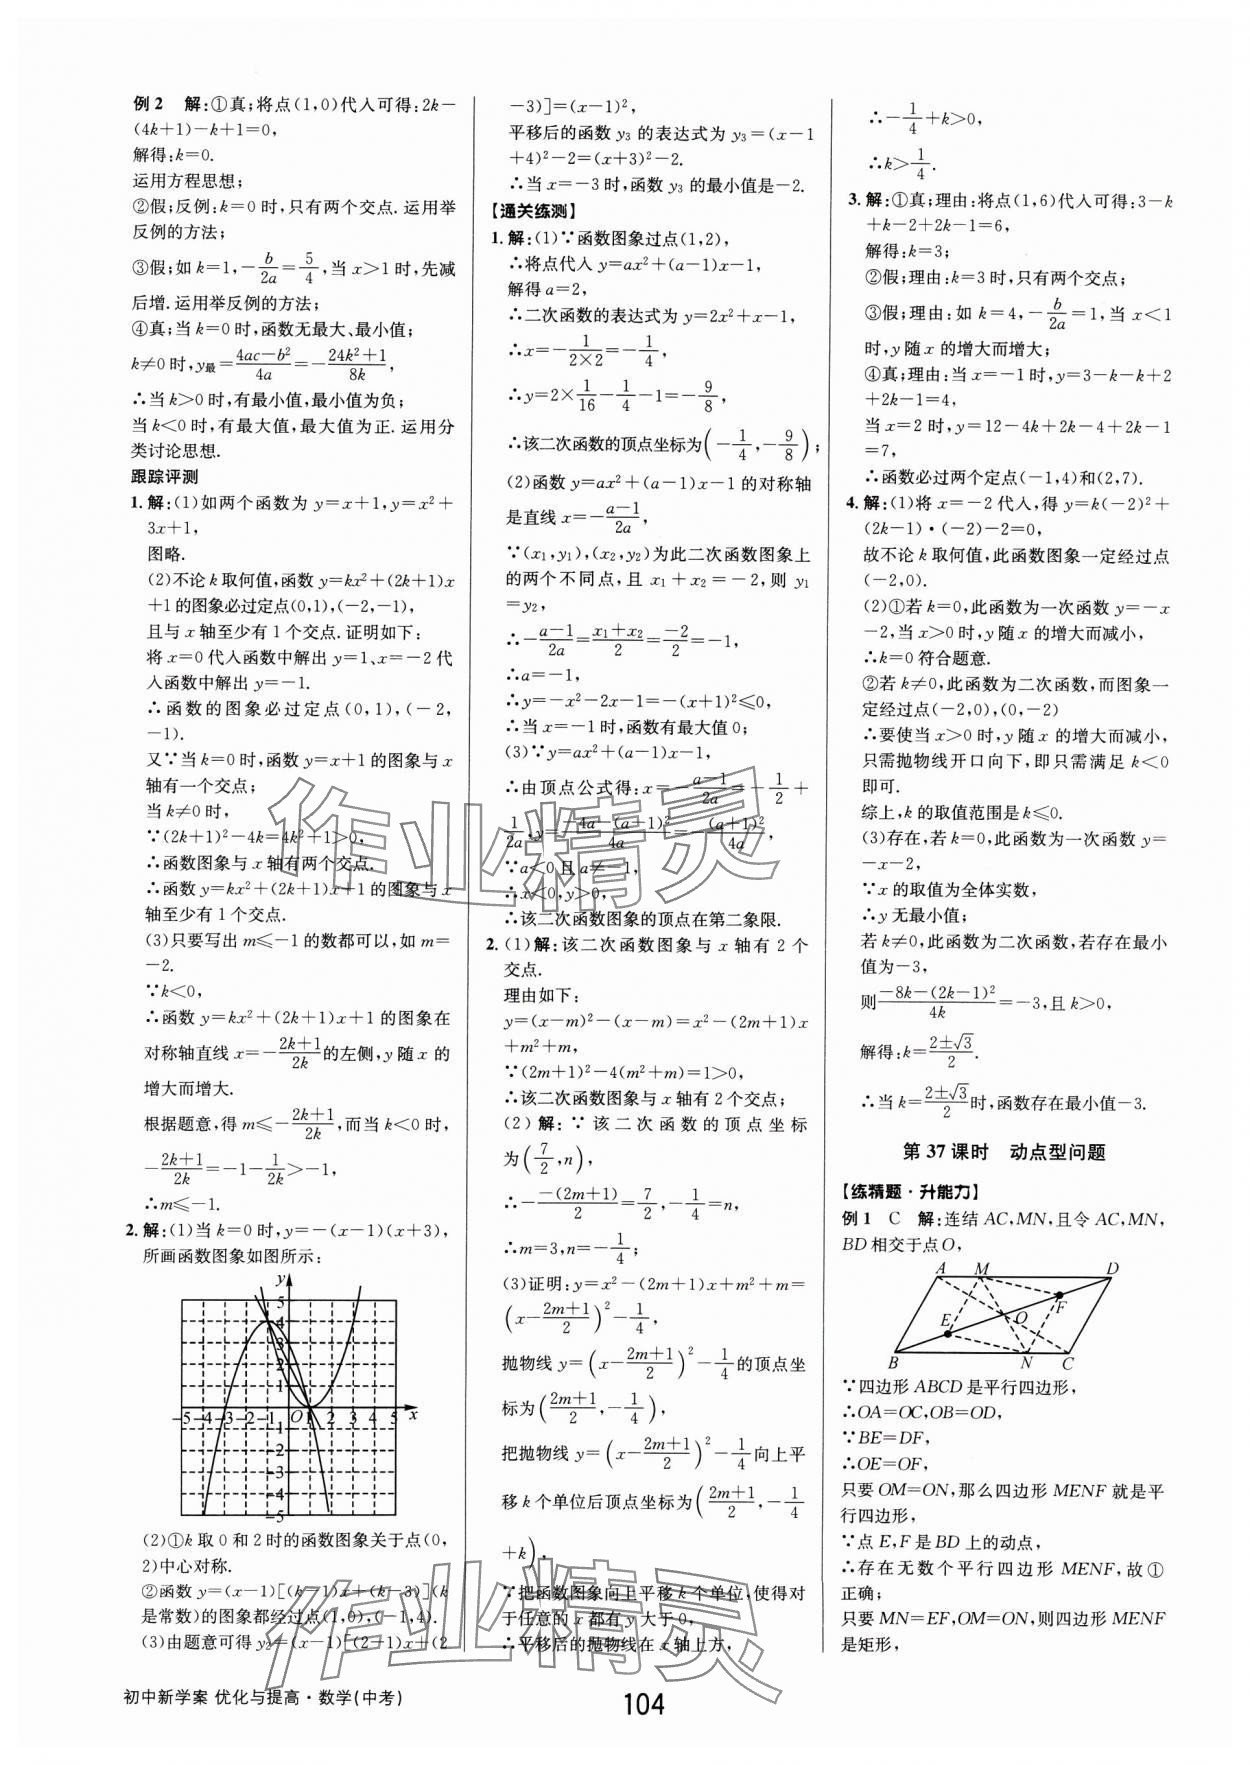 例2　解:①真;将点(1,0)代入可得:2k-
(4k+1)-k+1=0,
解得:k=0.
运用方程思想;
②假;反例:k=0时,只有两个交点.运用举
反例的方法;
③假;如k=1,-b/2a=5/4,当x>1时,先减
后增.运用举反例的方法;
④真;当k=0时,函数无最大、最小值;
k≠0时,y最=(4ac-b²)/4a=-(24k²+1)/8k,
∴当k>0时,有最小值,最小值为负;
当k<0时,有最大值,最大值为正.运用分
类讨论思想.
跟踪评测
1.解:(1)如两个函数为y=x+1,y=x²+
3x+1,
图略.
(2)不论k取何值,函数y=kx²+(2k+1)x
+1的图象必过定点(0,1),(-2,-1),
且与x轴至少有1个交点.证明如下:
将x=0代入函数中解出y=1、x=-2代
入函数中解出y=-1.
∴函数的图象必过定点(0,1),(-2,
-1).
又∵当k=0时,函数y=x+1的图象与x
轴有一个交点;
当k≠0时,
∵(2k+1)²-4k=4k²+1>0,
∴函数图象与x轴有两个交点.
∴函数y=kx²+(2k+1)x+1的图象与x
轴至少有1个交点.
(3)只要写出m≤-1的数都可以,如m=
-2.
∵k<0,
∴函数y=kx²+(2k+1)x+1的图象在
对称轴直线x=-(2k+1)/2k的左侧,y随x的
增大而增大.
根据题意,得m≤-(2k+1)/2k,而当k<0时,
-(2k+1)/2k=-1-1/2k>-1,
∴m≤-1.
2.解:(1)当k=0时,y=-(x-1)(x+3),
所画函数图象如图所示:
y
5
4
3
2
1
-5 -4 -3 -2 -1 O 1 2 3 4 5 x
-1
-2
-3
-4
-5
(2)①k取0和2时的函数图象关于点(0,
2)中心对称.
②函数y=(x-1)[(k-1)x+(k-3)](k
是常数)的图象都经过点(1,0),(-1,4).
(3)由题意可得y₂=(x-1)[(2-1)x+(2
-3)]=(x-1)²,
平移后的函数y₃的表达式为y₃=(x-1
+4)²-2=(x+3)²-2.
∴当x=-3时,函数y₃的最小值是-2.
【通关练测】
1.解:(1)∵函数图象过点(1,2),
∴将点代入y=ax²+(a-1)x-1,
解得a=2,
∴二次函数的表达式为y=2x²+x-1,
∴x=-1/(2×2)=-1/4,
∴y=2×1/16-1/4-1=-9/8,
∴该二次函数的顶点坐标为(-1/4,-9/8);
(2)函数y=ax²+(a-1)x-1的对称轴
是直线x=-(a-1)/2a,
∵(x₁,y₁),(x₂,y₂)为此二次函数图象上
的两个不同点,且x₁+x₂=-2,则y₁
=y₂,
∴-(a-1)/2a=(x₁+x₂)/2=-2/2=-1,
∴a=-1,
∴y=-x²-2x-1=-(x+1)²≤0,
∴当x=-1时,函数有最大值0;
(3)∵y=ax²+(a-1)x-1,
∴由顶点公式得:x=-(a-1)/2a=-1/2+
1/2a,y=(-4a-(a-1)²)/4a=-(a+1)²/4a,
∵a<0且a≠-1,
∴x<0,y>0,
∴该二次函数图象的顶点在第二象限.
2.(1)解:该二次函数图象与x轴有2个
交点.
理由如下:
y=(x-m)²-(x-m)=x²-(2m+1)x
+m²+m,
∵(2m+1)²-4(m²+m)=1>0,
∴该二次函数图象与x轴有2个交点;
(2)解:∵该二次函数的顶点坐标
为(7/2,n),
∴-(-(2m+1))/2=7/2,-1/4=n,
∴m=3,n=-1/4;
(3)证明:y=x²-(2m+1)x+m²+m=
(x-(2m+1)/2)²-1/4,
抛物线y=(x-(2m+1)/2)²-1/4的顶点坐
标为((2m+1)/2,-1/4),
把抛物线y=(x-(2m+1)/2)²-1/4向上平
移k个单位后顶点坐标为((2m+1)/2,-1/4
+k),
∵把函数图象向上平移k个单位,使得对
于任意的x都有y大于0,
∴平移后的抛物线在x轴上方,
∴-1/4+k>0,
∴k>1/4.
3.解:①真;理由:将点(1,6)代入可得:3-k
+k-2+2k-1=6,
解得:k=3;
②假;理由:k=3时,只有两个交点;
③假;理由:如k=4,-b/2a=1,当x<1
时,y随x的增大而增大;
④真;理由:当x=-1时,y=3-k-k+2
+2k-1=4,
当x=2时,y=12-4k+2k-4+2k-1
=7,
∴函数必过两个定点(-1,4)和(2,7).
4.解:(1)将x=-2代入,得y=k(-2)²+
(2k-1)·(-2)-2=0,
故不论k取何值,此函数图象一定经过点
(-2,0).
(2)①若k=0,此函数为一次函数y=-x
-2,当x>0时,y随x的增大而减小,
∴k=0符合题意.
②若k≠0,此函数为二次函数,而图象一
定经过点(-2,0),(0,-2)
∴要使当x>0时,y随x的增大而减小,
只需抛物线开口向下,即只需满足k<0
即可.
综上,k的取值范围是k≤0.
(3)存在,若k=0,此函数为一次函数y=
-x-2,
∵x的取值为全体实数,
∴y无最小值;
若k≠0,此函数为二次函数,若存在最小
值为-3,
则(-8k-(2k-1)²)/4k=-3,且k>0,
解得:k=(2±√3)/2.
∴当k=(2±√3)/2时,函数存在最小值-3.
第37课时　动点型问题
【练精题·升能力】
例1　C　解:连结AC,MN,且令AC,MN,
BD相交于点O,
A M D
F
O
E
B N C
∵四边形ABCD是平行四边形,
∴OA=OC,OB=OD,
∵BE=DF,
∴OE=OF,
只要OM=ON,那么四边形MENF就是平
行四边形,
∵点E,F是BD上的动点,
∴存在无数个平行四边形MENF,故①
正确;
只要MN=EF,OM=ON,则四边形MENF
是矩形,
初中新学案 优化与提高·数学(中考)
104
作业精灵
作业精灵